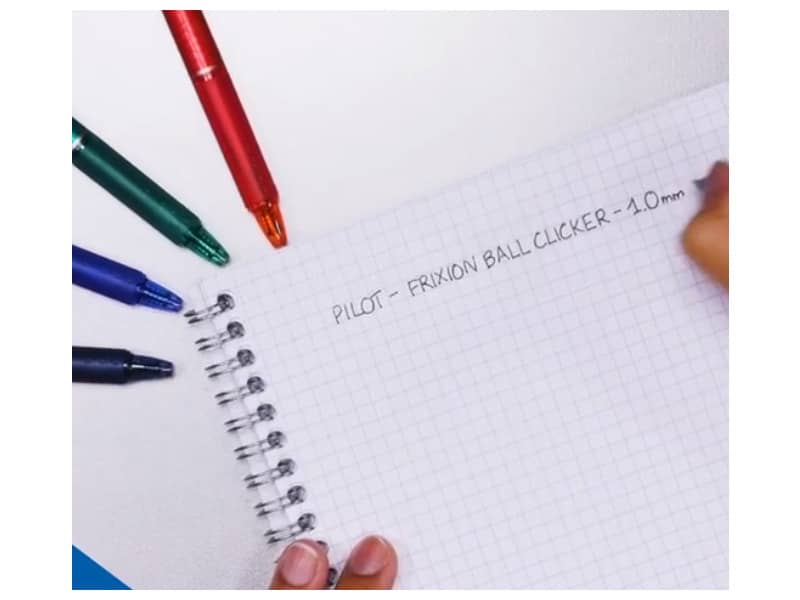 PILOT - FRIXION BALL CLICKER - 1.0mm